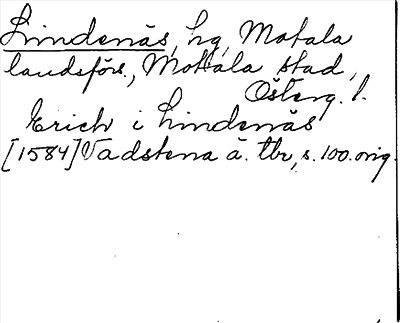 Lindenäs, hg, Motala
landsförs., Motala stad,
Österg. l.
Erich i Lindenäs
[1584] Vadstena ä. tbr, s. 100. orig.